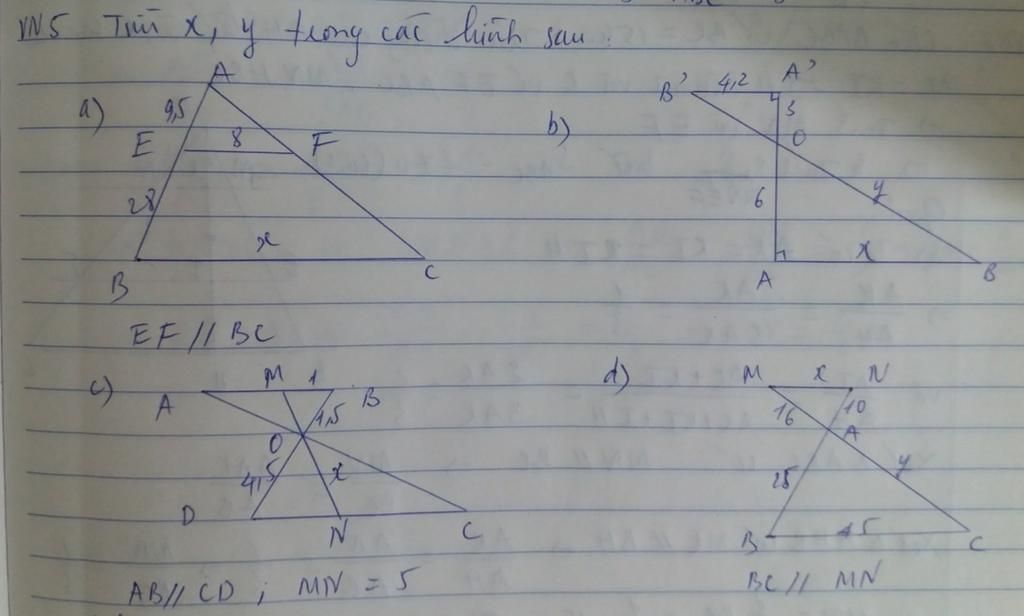 VN5 Tìm x, y trong các hình sau:
a)
A
9,5
E 8 F
28
x
B C
EF // BC
b)
B' 4,2 A'
3
O
6 y
x
A B
c)
A M 1 B
1,5
O
4,5 x
D N C
AB // CD ; MN = 5
d)
M x N
16 10
A
25 y
B 45 C
BC // MN